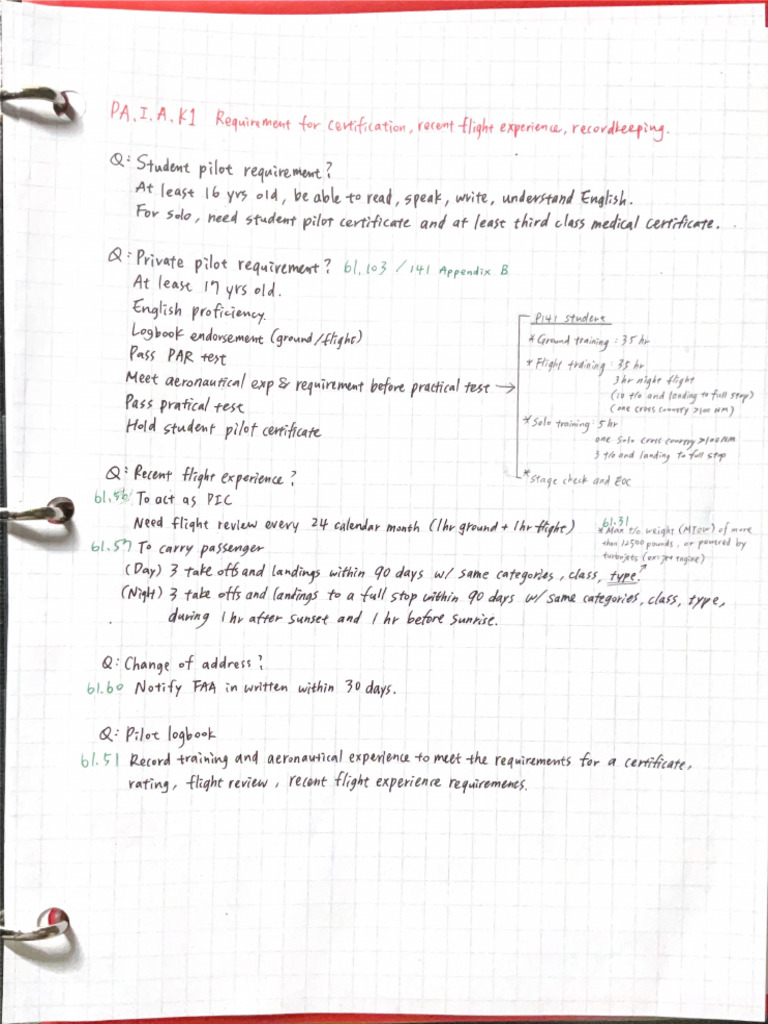 PA.I.A.K1 Requirement for certification, recent flight experience, recordkeeping.
Q: Student pilot requirement?
At least 16 yrs old, be able to read, speak, write, understand English.
For solo, need student pilot certificate and at least third class medical certificate.
Q: Private pilot requirement? 61.103 / 141 Appendix B
At least 17 yrs old.
English proficiency.
Logbook endorsement (ground/flight)
Pass PAR test
Meet aeronautical exp & requirement before practical test →
Pass pratical test
Hold student pilot certificate
P141 student
* Ground training : 35 hr
* Flight training : 35 hr
3 hr night flight
(10 t/o and landing to full stop)
(one cross country >100 NM)
* Solo training : 5 hr
one solo cross country >100NM
3 t/o and landing to full stop
* Stage check and EOC
Q: Recent flight experience?
61.56 To act as PIC
Need flight review every 24 calendar month (1hr ground + 1hr flight)
61.57 To carry passenger
(Day) 3 take offs and landings within 90 days w/ same categories, class, type.
(Night) 3 take offs and landings to a full stop within 90 days w/ same categories, class, type,
during 1 hr after sunset and 1 hr before sunrise.
61.31
* Max t/o weight (MTOW) of more
than 12500 pounds, or powered by
turbojets (ex: jet engine)
Q: Change of address?
61.60 Notify FAA in written within 30 days.
Q: Pilot logbook
61.51 Record training and aeronautical experience to meet the requirements for a certificate,
rating, flight review, recent flight experience requirements.